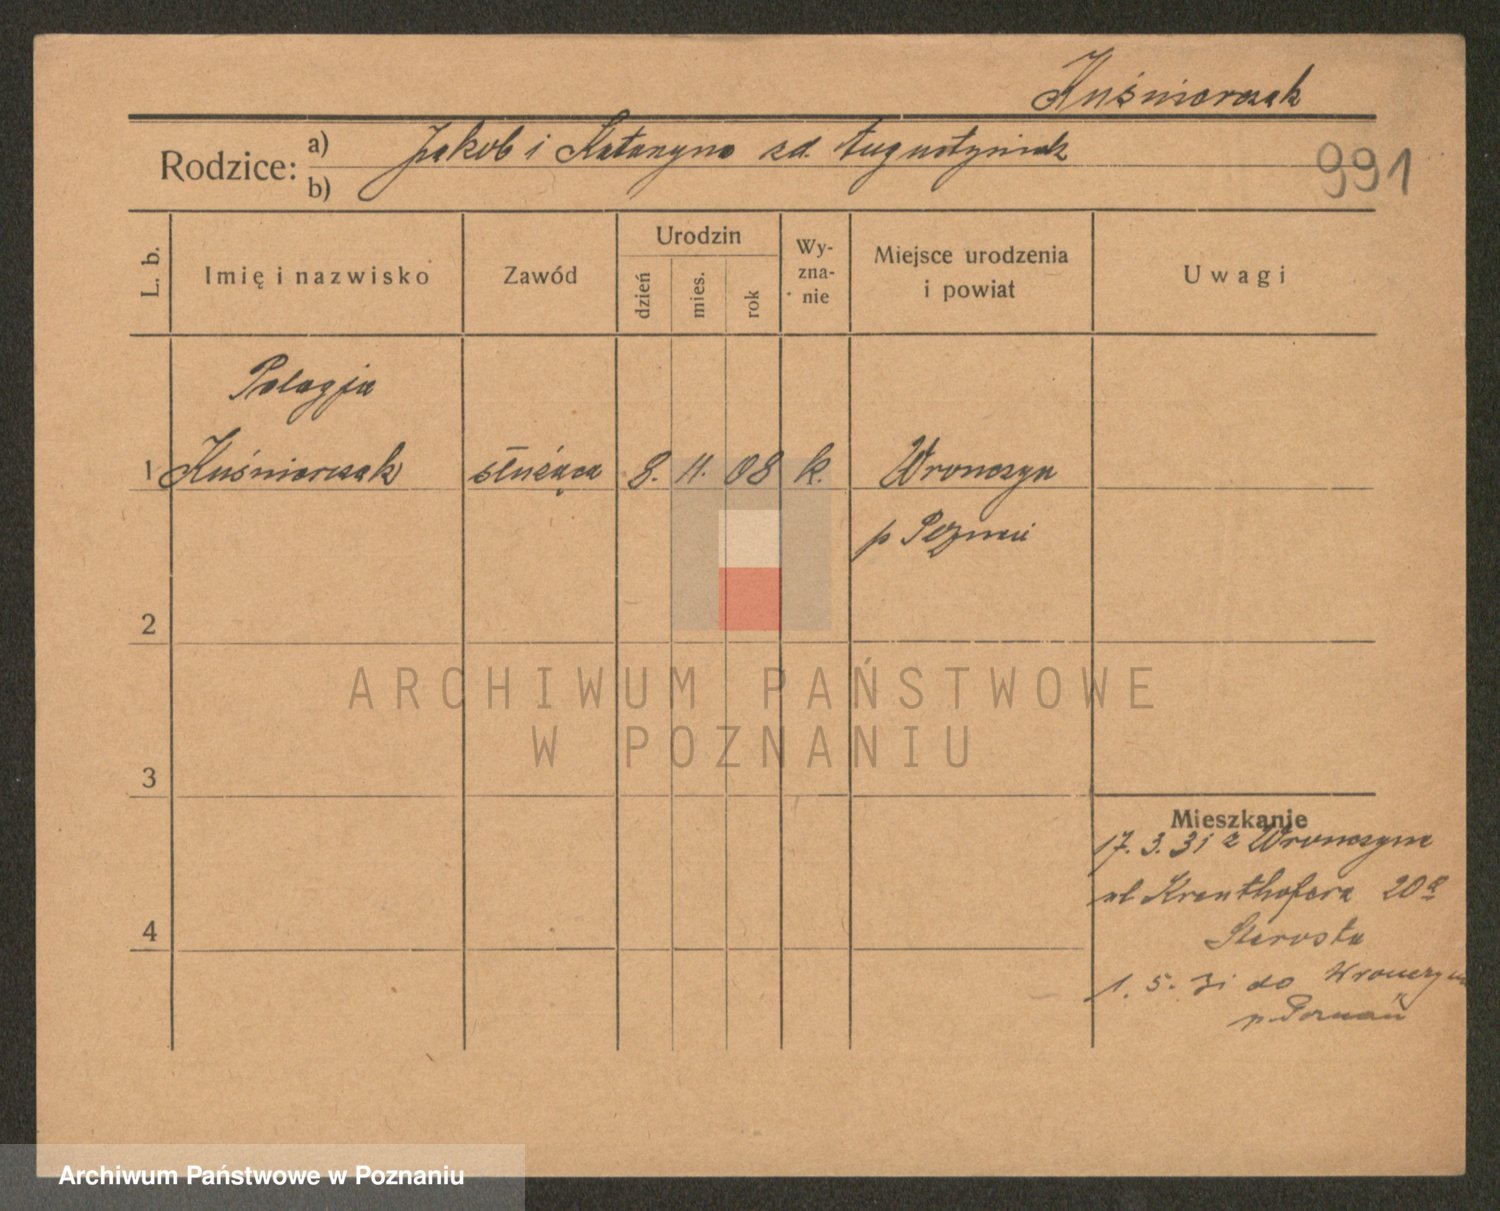 Kuśnierczak
Rodzice: a) Jakob i Katarzyna zd. Augustyniak
b)
991
L. b.
Imię i nazwisko
Zawód
Urodzin
dzień
mies.
rok
Wy-
zna-
nie
Miejsce urodzenia
i powiat
Uwagi
Pelagja
1 Kuśnierczak służąca 8. 11. 08 k. Wronczyn
p Poznań
2
3
4
Mieszkanie
17. 3. 31 z Wronczyna
ul Krauthofera 20a
Starosta
1. 5. 31 do Wronczyn
p. Poznań
ARCHIWUM PAŃSTWOWE
W POZNANIU
Archiwum Państwowe w Poznaniu